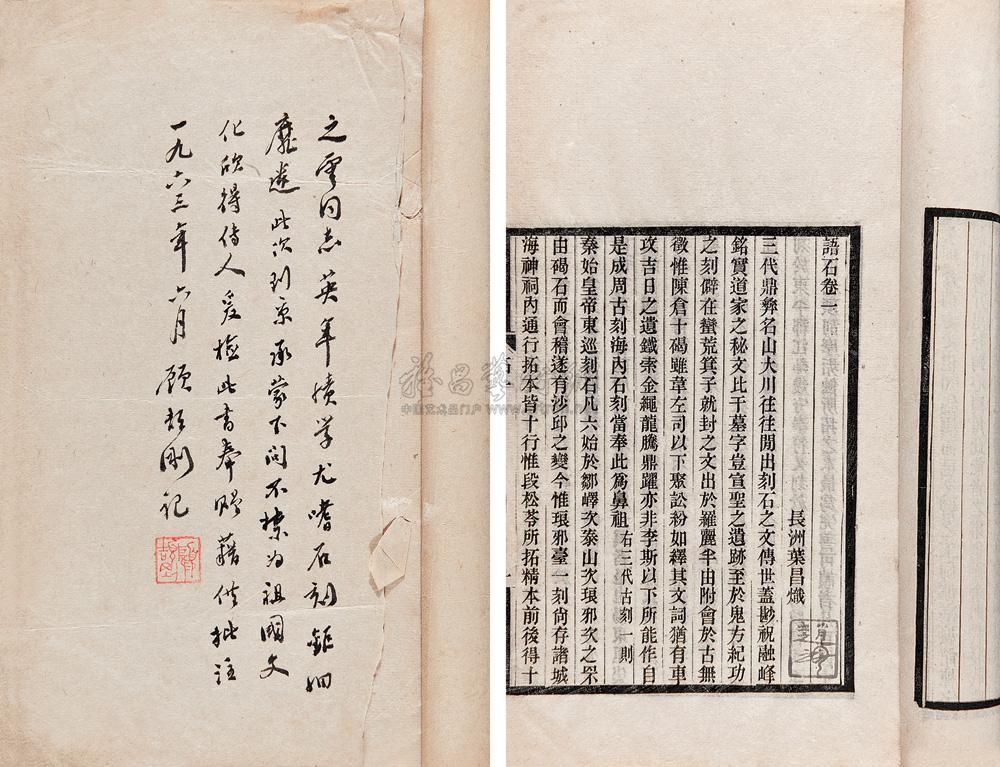 之雲同志英年績學尤嗜石刻鉅細
靡遺此次到京承蒙下問不禁为祖國文
化欣得侍人爰檢此書奉贈藉供批注
一九六三年六月顧頡剛記
語石卷一
長洲葉昌熾
三代鼎彝名山大川往往閒出刻石之文傳世蓋尟祝融峰
銘實道家之秘文比干墓字豈宣聖之遺跡至於鬼方紀功
之刻僻在蠻荒箕子就封之文出於羅麗半由附會於古無
徵惟陳倉十碣雖韋左司以下聚訟紛如繹其文詞猶有車
攻吉日之遺鐵索金繩龍騰鼎躍亦非李斯以下所能作自
是成周古刻海內石刻當奉此為鼻祖右三代古刻一則
秦始皇帝東巡刻石凡六始於鄒嶧次泰山次琅邪次之罘
由碣石而會稽遂有沙邱之變今惟琅邪臺一刻尙存諸城
海神祠內通行拓本皆十行惟段松苓所拓精本前後得十